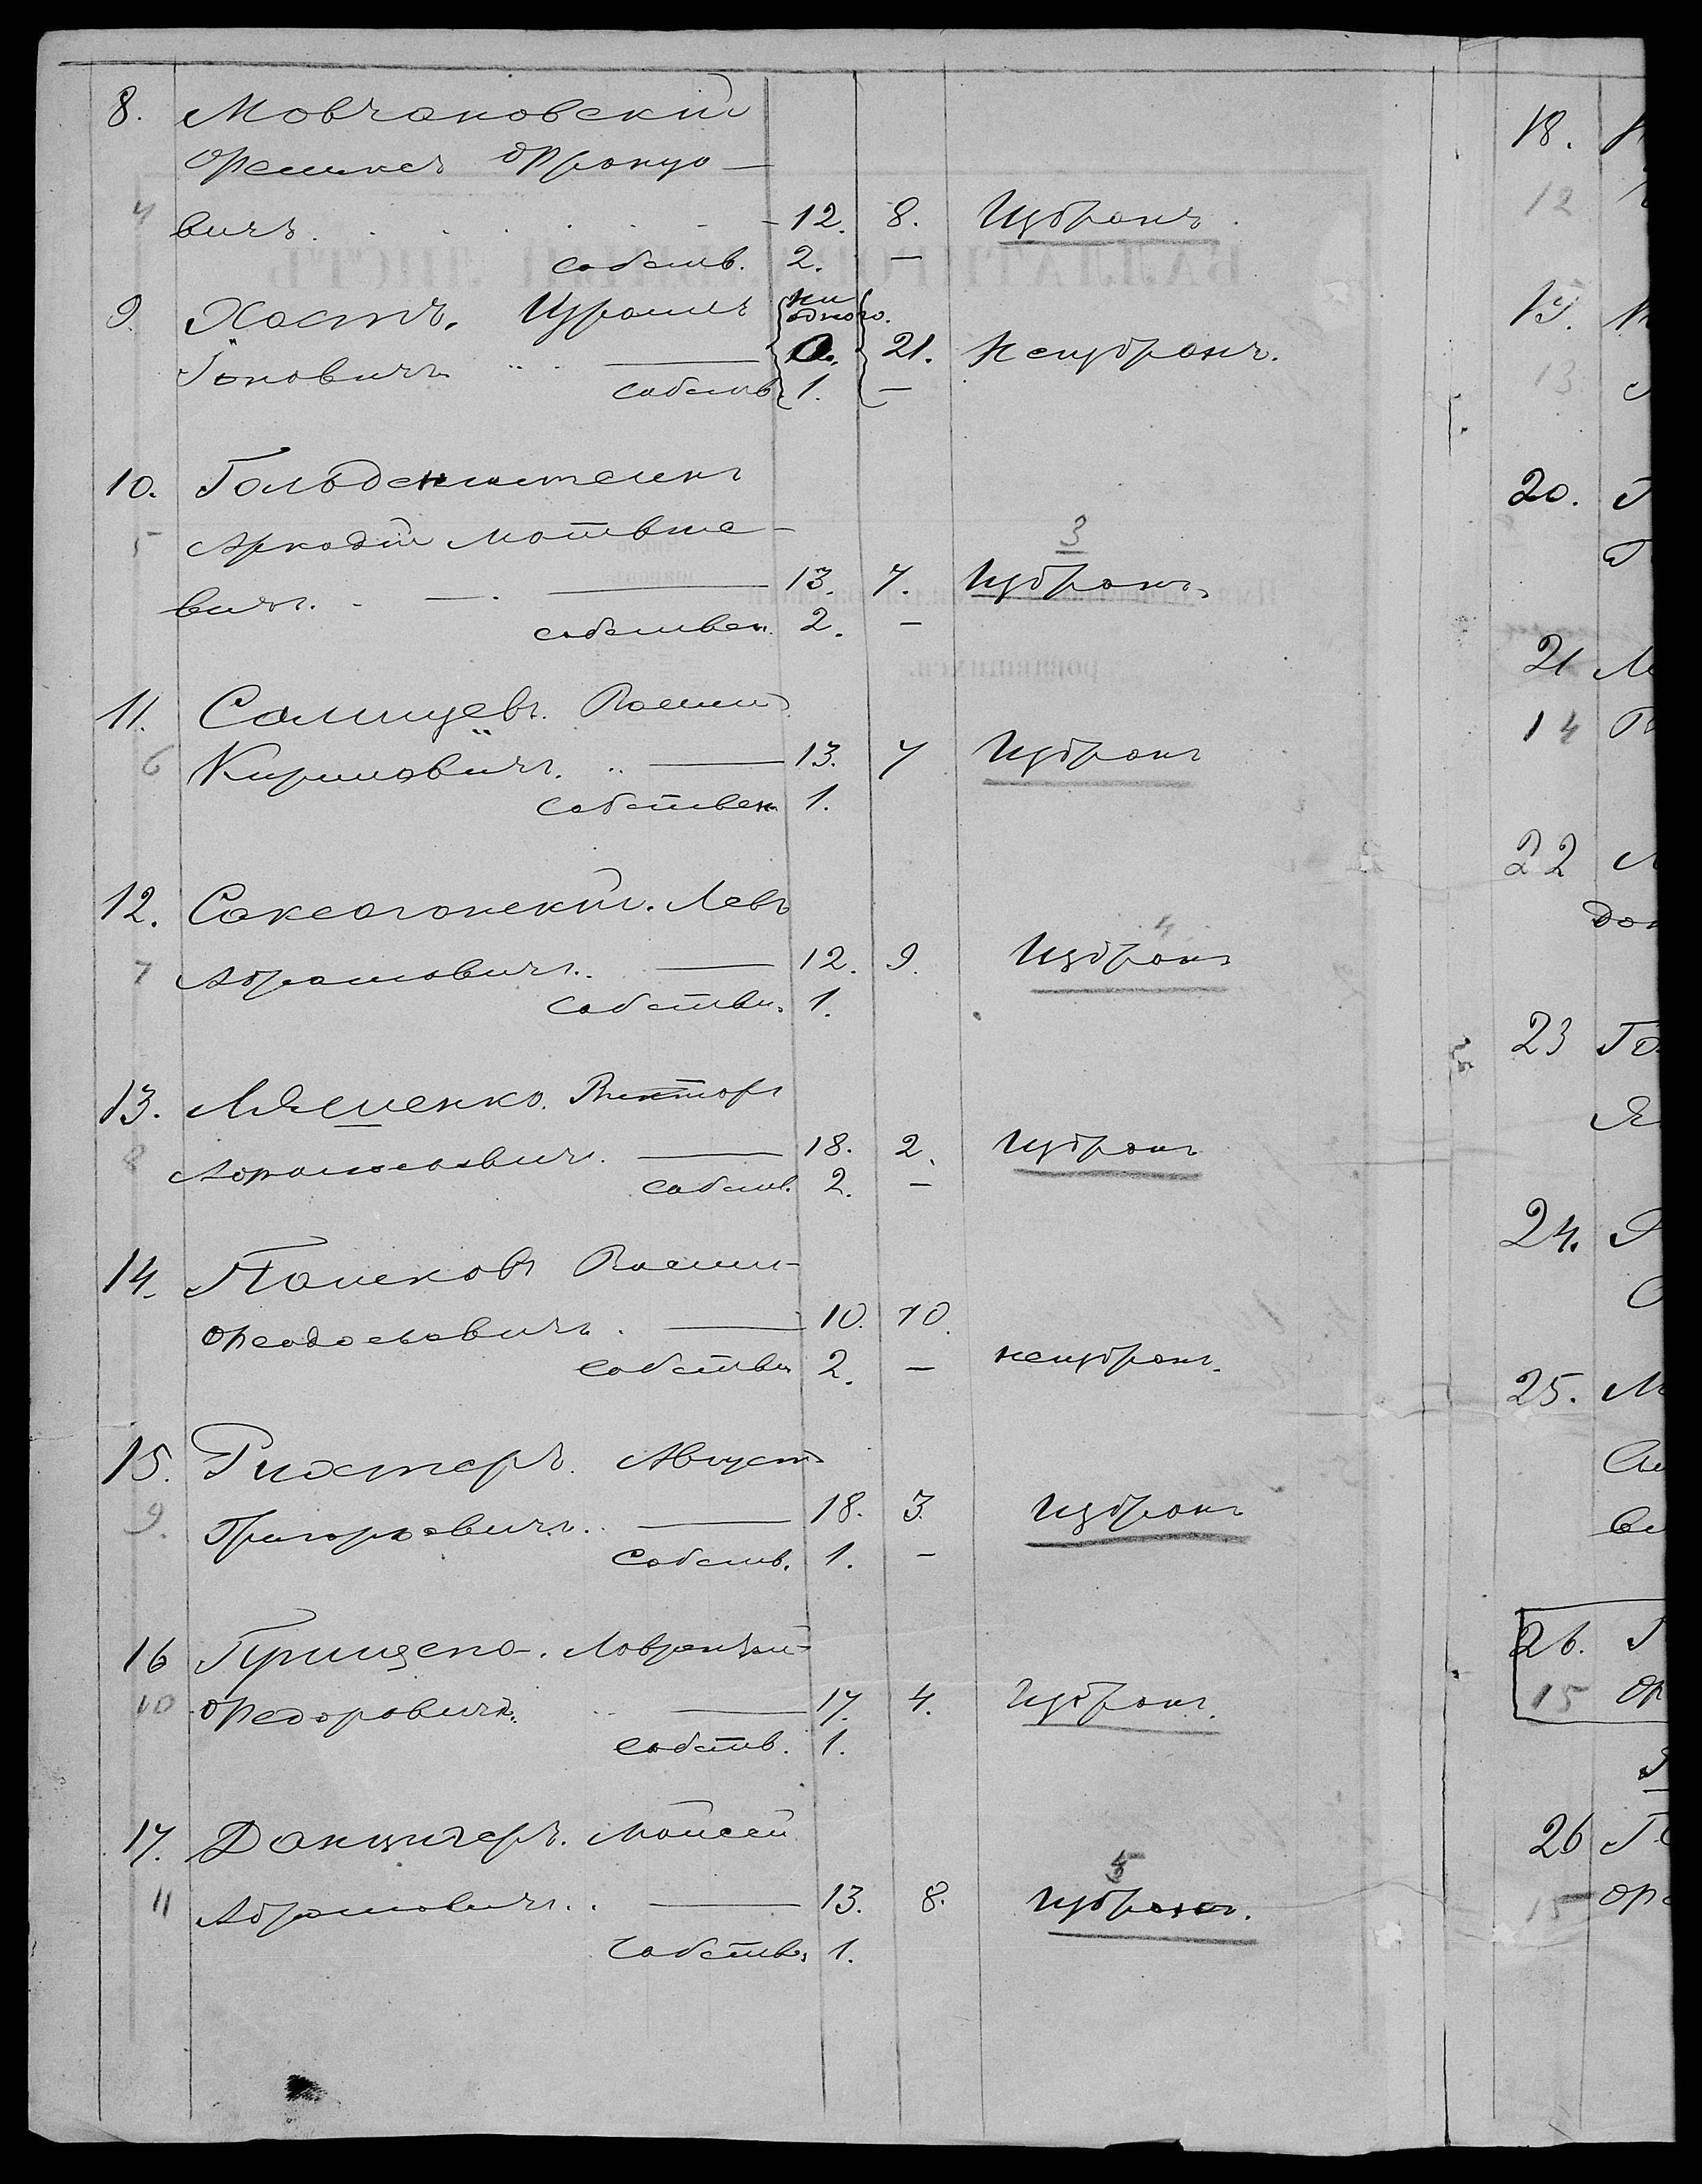 8. Мовчановскій
Феликсъ Францо-
4 вичъ. - 12. 8. Избранъ.
собств. 2. —
9. Хостъ. Израиль {ни одного.
Іоновичъ 0. 21. Неизбранъ.
собств. 1. —
10. Гольденштейнъ
Аркадій Матвѣе- 3
5 вичъ. — 13. 7. Избранъ.
собствен. 2. —
11. Солнцевъ. Васил.
6 Кириловичъ. — 13. 7 Избранъ
собствен. 1.
12. Саксаганскій. Левъ
4
7 Абрамовичъ. — 12. 9. Избранъ
собствен. 1.
13. Ляшенко. Викторъ
8 — 18. 2. Избранъ
собств. 2. —
14. Поляковъ Васил-
Феодосьевичъ. — 10. 10.
собствен 2. — неизбранъ.
15. Рихтеръ. Августъ
9. Григорьевичъ. — 18. 3. Избранъ
собств. 1. —
16 Прищепа. Лаврентій
10 Федоровичъ. — 17. 4. Избранъ.
собств. 1.
17. Данцигеръ. Моисей
5
11 Абрамовичъ. — 13. 8. Избранъ.
собств. 1.
18.
12
19.
13
20.
21
14
22
23
24.
25.
26.
15
26
15